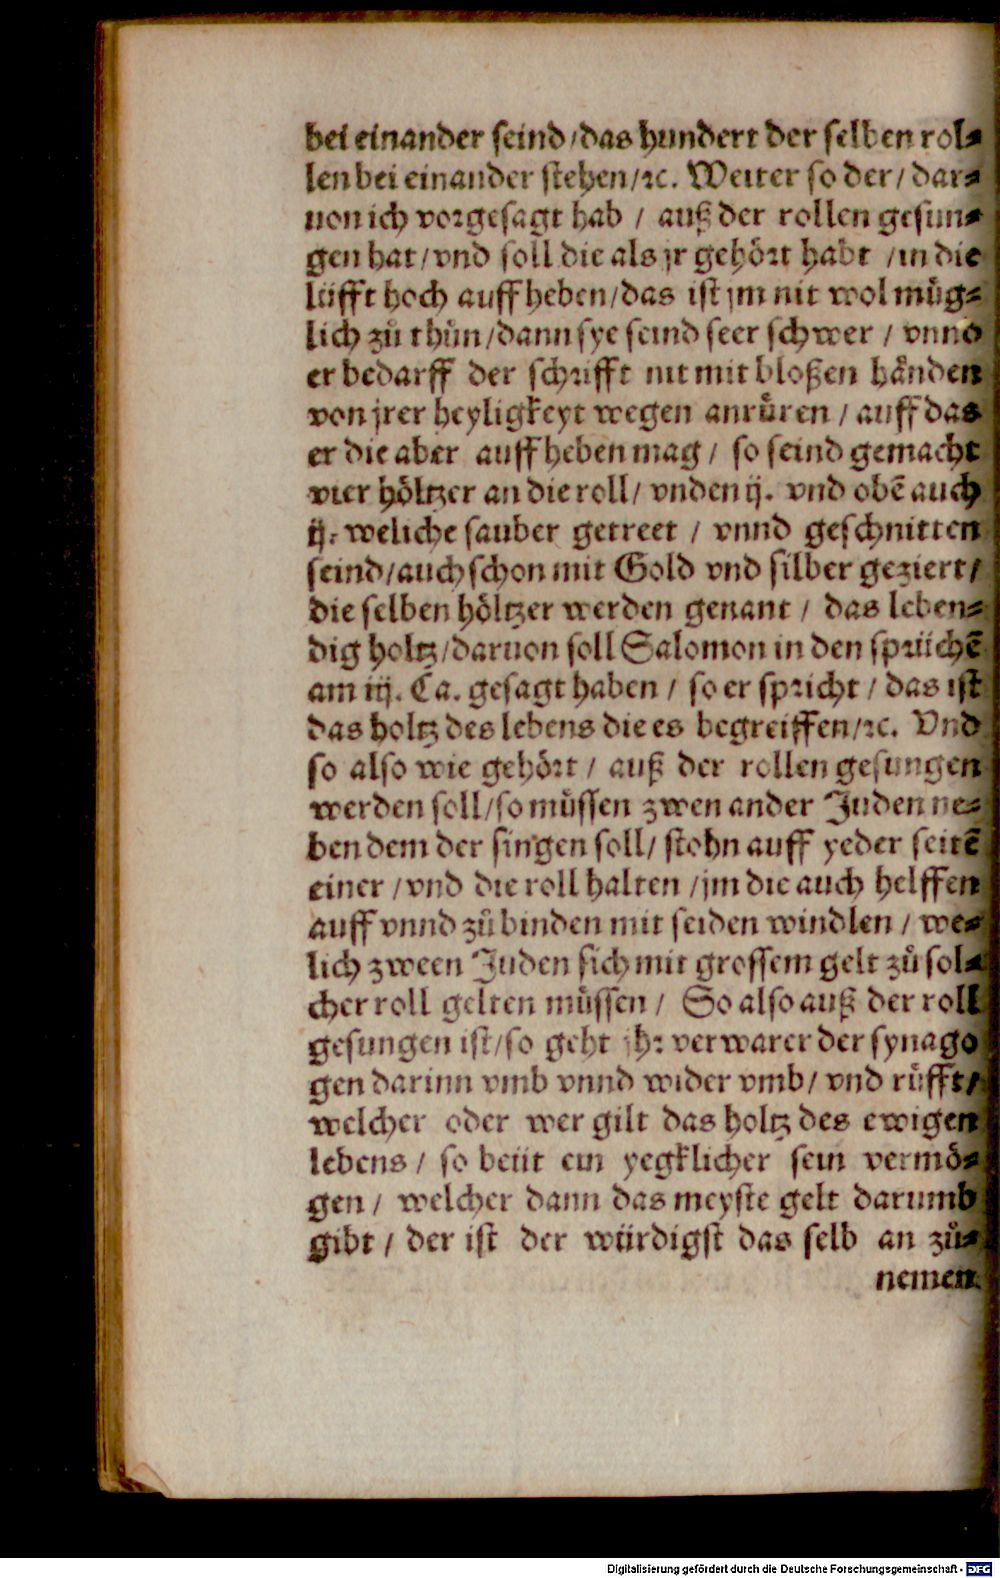 bei einander seind / das hundert der selben rol⸗
len bei einander stehen / ꝛc. Weiter so der / dar⸗
uon ich vorgesagt hab / auß der rollen gesun⸗
gen hat / vnd soll die als jr gehört habt / in die
lüfft hoch auff heben / das ist jm nit wol müg⸗
lich zů thůn / dann sye seind seer schwer / vnnd
er bedarff der schrifft nit mit bloßen händen
von jrer heyligkeyt wegen anrůren / auff das
er die aber auff heben mag / so seind gemacht
vier höltzer an die roll / vnden ij. vnd obē auch
ij. weliche sauber getreet / vnnd geschnitten
seind / auch schon mit Gold vnd silber geziert /
die selben höltzer werden genant / das leben⸗
dig holtz / daruon soll Salomon in den sprüchē
am iij. Ca. gesagt haben / so er spricht / das ist
das holtz des lebens die es begreiffen / ꝛc. Vnd
so also wie gehört / auß der rollen gesungen
werden soll / so müssen zwen ander Juden ne⸗
ben dem der singen soll / stohn auff yeder seitē
einer / vnd die roll halten / jm die auch helffen
auff vnnd zů binden mit seiden windlen / we⸗
lich zween Juden sich mit grossem gelt zů sol⸗
cher roll gelten müssen / So also auß der roll
gesungen ist / so geht jhr verwarer der synago
gen darinn vmb vnnd wider vmb / vnd růfft /
welcher oder wer gilt das holtz des ewigen
lebens / so beüt ein yegklicher sein vermö⸗
gen / welcher dann das meyste gelt darumb
gibt / der ist der würdigst das selb an zů⸗
nemen.
Digitalisierung gefördert durch die Deutsche Forschungsgemeinschaft - DFG